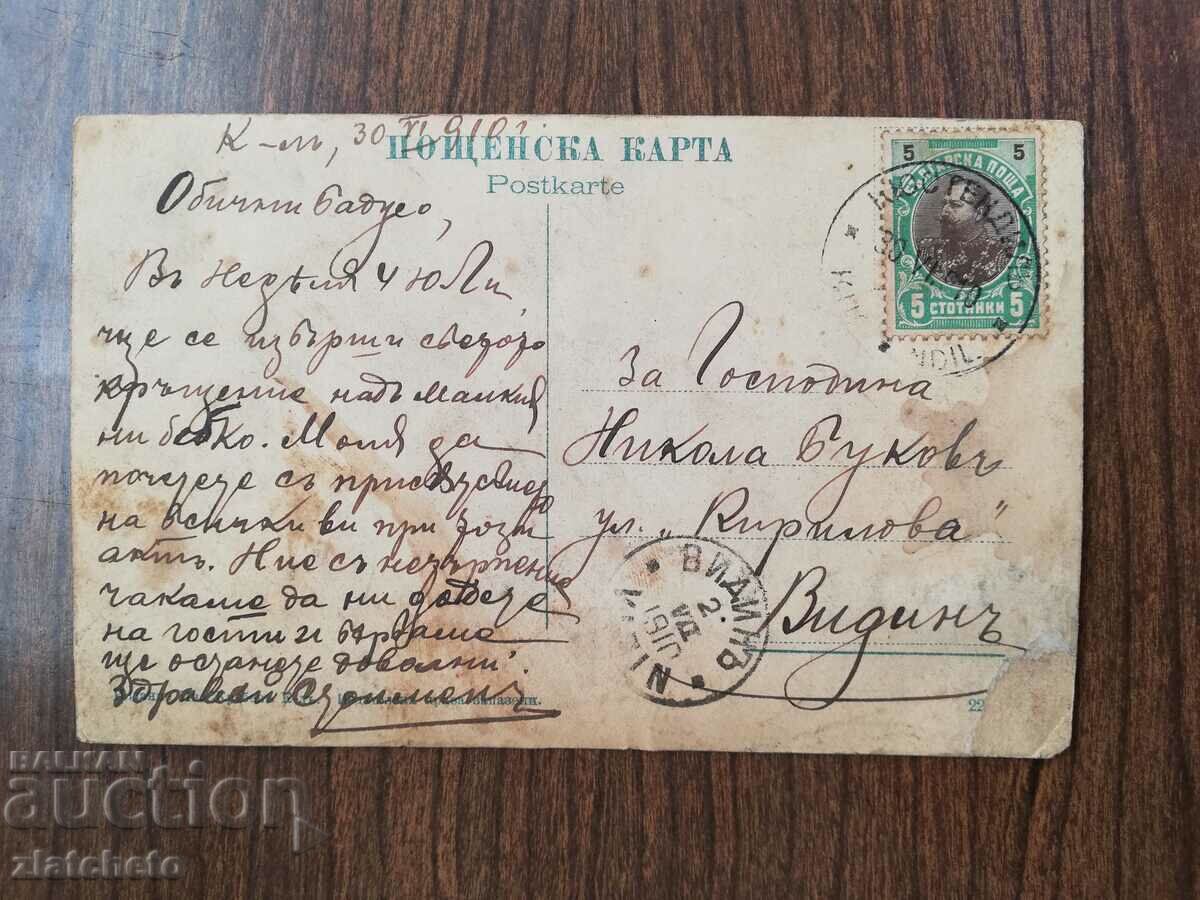 К-лъ, 30 VI 910 г.
ПОЩЕНСКА КАРТА
Postkarte
Обични
Въ Неделя 4 Юли
ще се извърши светото
кръщение надъ малкия
ни бебко. Моля да
почетете съ присъствието
на всички ви при този
актъ. Ние съ нетърпение
чакаме да ни дойдете
на гости и вървame
ще останете доволни.
Здравей
5 5
БЪЛГАРСКА ПОЩА
5 СТОТИНКИ 5
КЮСТЕНДИЛЪ
За Господина
Никола Буковъ
ул. „Кирилова"
Видинъ
ВИДИНЪ
2. VII 1910
22
BALKAN
auction
zlatcheto